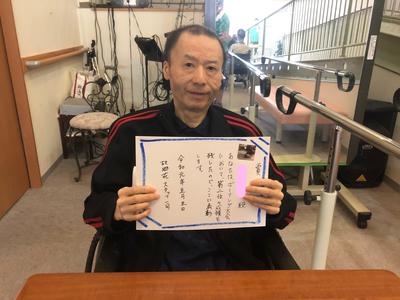 賞
殿
あなたは、ボーリング大会
において、第二位の成績を
残したので、ここに表彰
します。
令和元年五月
スタッフ一同